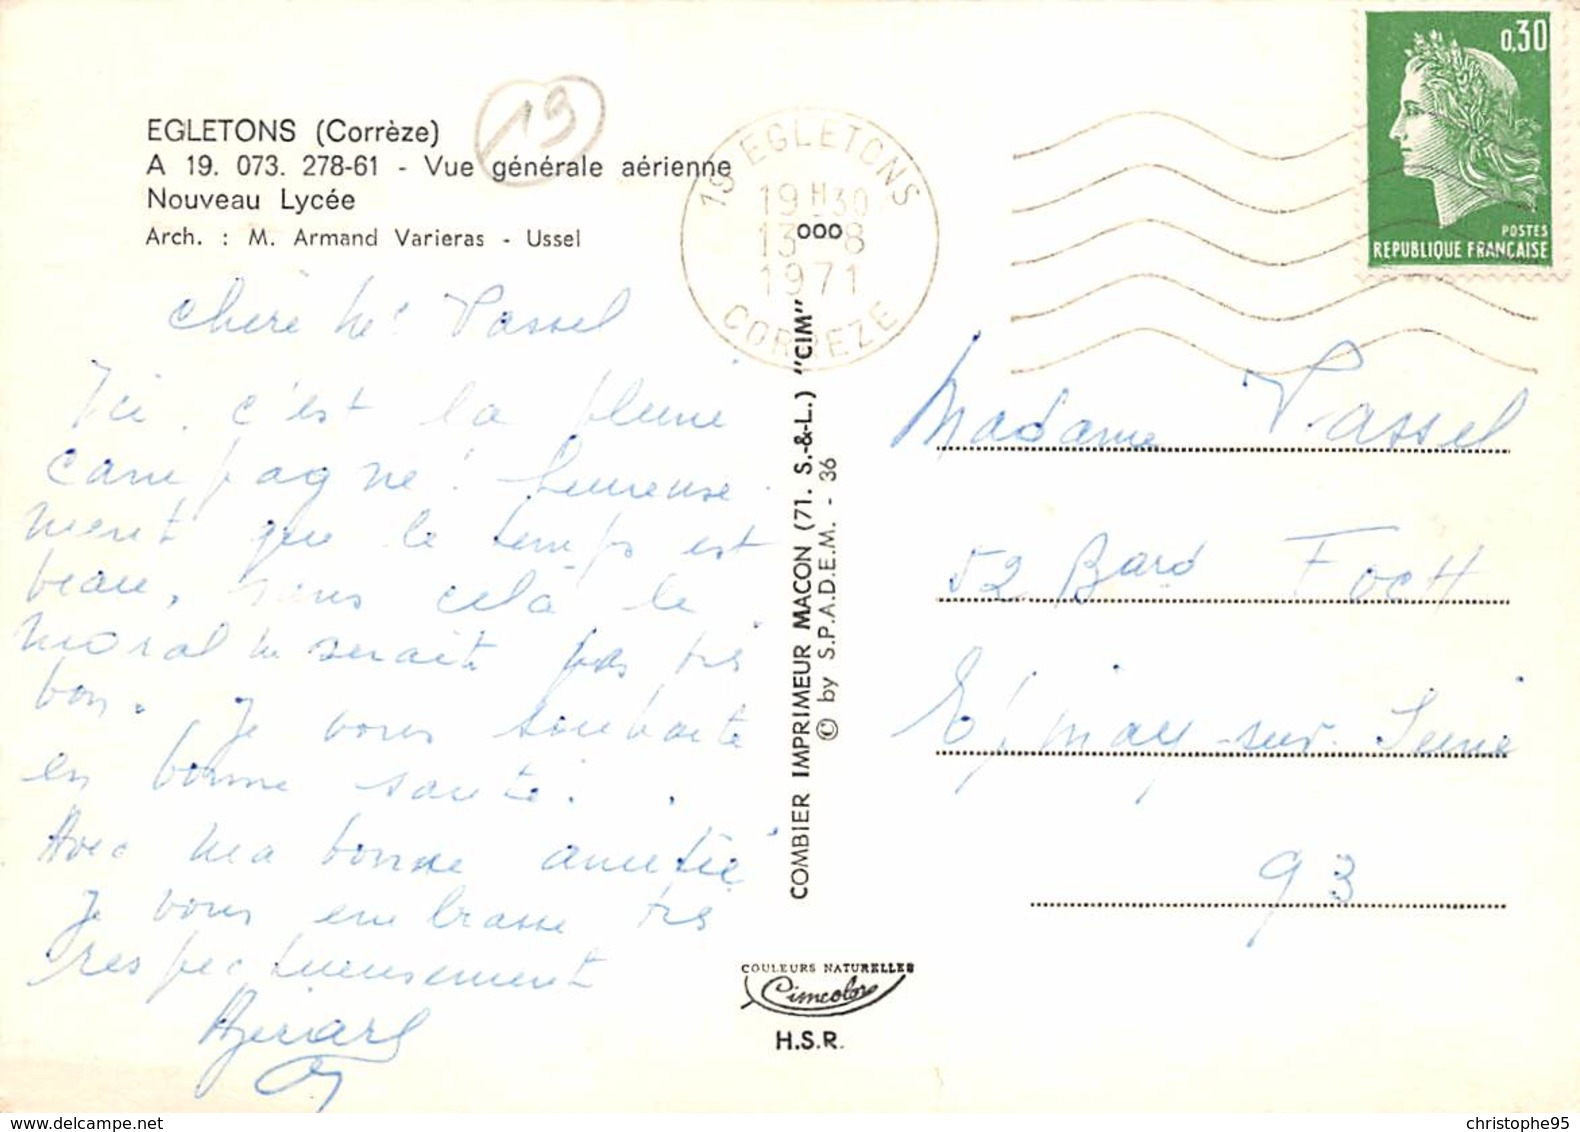 EGLETONS (Corrèze)
A 19. 073. 278-61 - Vue générale aérienne
Nouveau Lycée
Arch. : M. Armand Varieras - Ussel
19
19 EGLETONS
19H30
13 - 8
1971
CORREZE
0,30
POSTES
REPUBLIQUE FRANÇAISE
chère Me Vassel
Ici, c'est la pleine
campagne! heureuse
ment que le temps est
beau, sans celà le
moral ne serait pas très
bon. Je vous souhaite
en bonne santé.
Avec ma bonne amitié
Je vous embrasse très
respectueusement
COMBIER IMPRIMEUR MACON (71. S.-&-L.) "CIM"
© by S.P.A.D.E.M. - 36
COULEURS NATURELLES
Cimcolor
H.S.R.
Madame Vassel
52 Bard Foch
Epinay-sur-Seine
93
christophe95